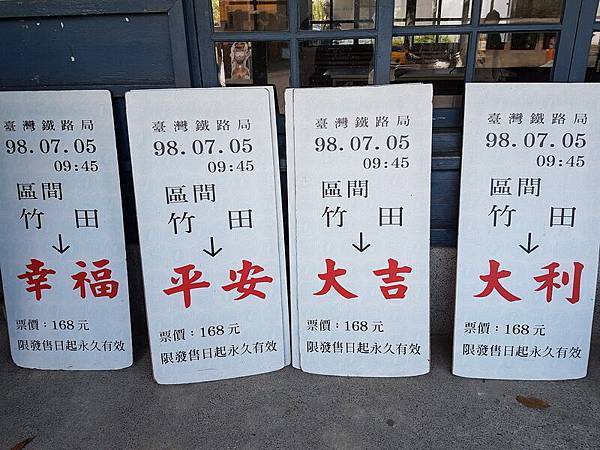 臺灣鐵路局
98.07.05
09:45
區間
竹田
↓
幸福
票價:168元
限發售日起永久有效
臺灣鐵路局
98.07.05
09:45
區間
竹田
↓
平安
票價:168元
限發售日起永久有效
臺灣鐵路局
98.07.05
09:45
區間
竹田
↓
大吉
票價:168元
限發售日起永久有效
臺灣鐵路局
98.07.05
09:45
區間
竹田
↓
大利
票價:168元
限發售日起永久有效